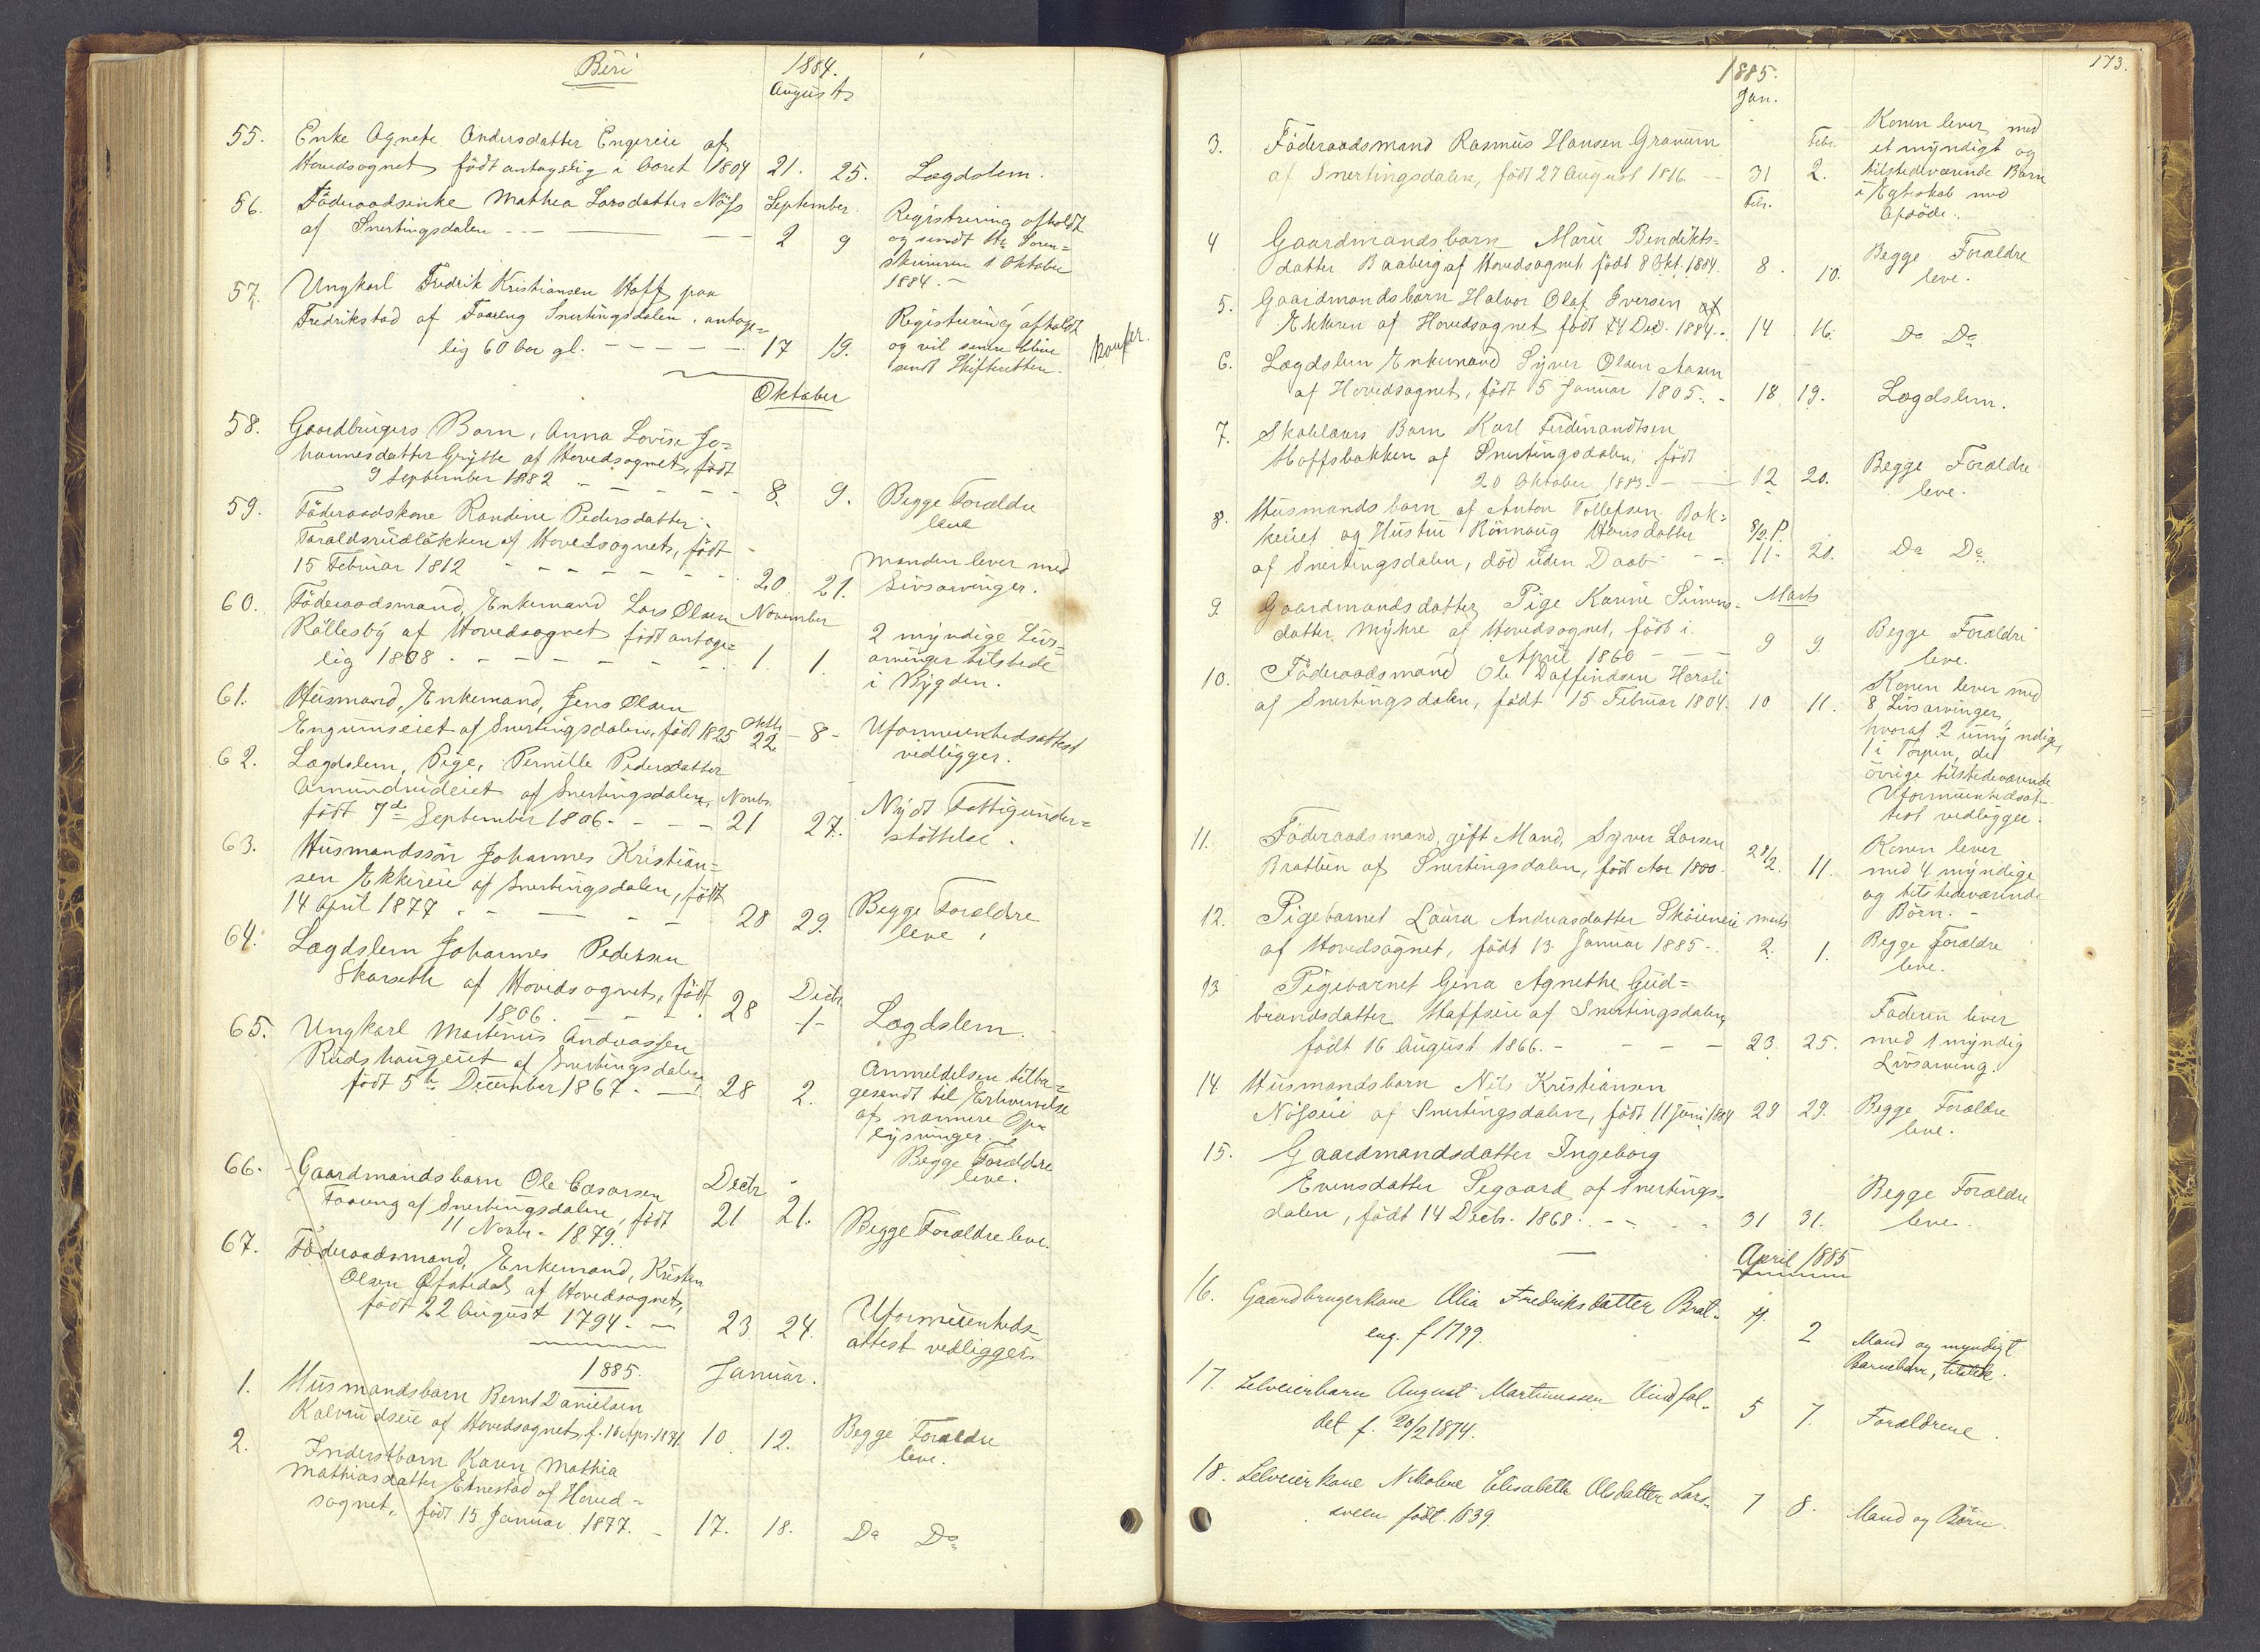 Biri
1884.
August
55. Enke Agnete Andersdatter Engereie af
Hovedsognet födt antagelig i Aaret 1804 21. 25. Lægdslem.
56. Föderaadsenke Mathea Larsdatter Næss September
af Snertingsdalen 2 9
Registrering afholdt
og sendt Hr Soren=
skriveren 1 Oktober
1884. -
57. Ungkarl Fredrik Kristiansen Hoff paa
Fredrikstad af Faareng Snertingsdalen. antage=
lig 60 Aar gl. 17 19.
Registrering afholdt
og vil senere blive
sendt Skifteretten.
Oktober
58. Gaardbrugers Barn, Anna Lovise Jo=
hannesdatter Grytte af Hovedsognet, födt
9 September 1882 8. 9. Begge Forældre
leve
59. Föderaadskone Randine Pedersdatter
Taraldsrudløkken af Hovedsognet, födt
15 Februar 1812 20. 21.
Manden lever med
Livsarvinger.
60. Föderaadsmand, Enkemand Lars Olsen November
Röllesby af Hovedsognet födt antage=
lig 1808. 1. 1.
2 myndige Livs=
arvinger tilstede
i Bygden.
61. Husmand, Enkemand, Jens Olsen
Engumseiet af Snertingsdalen, födt 1825 Oktb. 22 - 8 - Uformuenhedsattest
vedligger.
62. Lægdslem, Pige, Pernille Pedersdatter
Amundrudeiet af Snertingsdalen, Novbr.
födt 7de September 1806. 21 27. Nydt Fattigunder=
støttelse.
63. Husmandssön Johannes Kristian=
sen Ekkereie af Snertingsdalen, födt
14 April 1877 28 29. Begge Forældre
leve.
64. Lægdslem Johannes Pedersen
Skarseth af Hovedsognet, födt
1806. 28 Decbr. 1- Lægdslem.
65. Ungkarl Martinus Andreassen
Rudshaugeiet af Snertingsdalen
födt 5te December 1867. 28 2.
Anmeldelsen tilba=
gesendt til Erhvervelse
af nærmere Op=
lysninger.
Begge Forældre
leve.
66. Gaardmandsbarn Ole Cæsarsen Decbr
Faareng af Snertingsdalen, födt 21 21.
11 Novbr. 1879. Begge Forældre leve.
67. Föderaadsmand, Enkemand, Kristen
Olsen Ofstedal af Hovedsognet,
födt 22 August 1794. 23. 24. Uformuenheds=
attest vedligger.
1885. Januar.
1. Husmandsbarn Bernt Danielsen
Kalvrudseie af Hovedsognet, 10 12. Begge Forældre
leve.
2. Inderstbarn Karen Mathia
Mathiasdatter Etnestad af Hoved=
sognet, födt 15 Januar 1877. 17. 18. Do Do
173.
1885.
Jan.
3. Föderaadsmand Rasmus Hansen Granum Febr.
af Snertingsdalen, födt 27 August 1816 31 2.
Konen lever med
et myndigt og
tilstedeværende Barn
i Ægteskab med
Afdöde.
Febr.
4 Gaardmandsbarn Marie Bendikts=
datter Baaberg af Hovedsognet födt 8 Okt. 1884. 8. 10. Begge Forældre
leve.
5. Gaardmandsbarn Halvor Olaf Iversen af
Ekkeren af Hovedsognet födt 14 Dec. 1884. 14 16. Do Do
6. Lægdslem Enkemand Syver Olsen Aasen
af Hovedsognet, födt 5 Januar 1805. 18 19. Lægdslem.
7. Skolelærers Barn Karl Ferdinandsen
Hoffsbakken af Snertingsdalen, födt
20 Oktober 1883. 12 20. Begge Forældre
leve.
8. Husmandsbarn af Anton Tollefsen Bak=
keeiet og Hustru Rönnaug Hansdatter 8/2 f.
af Snertingsdalen, död uden Daab 11- 20. Do Do
9. Gaardmandsdatter Pige Karine Simens= Marts
datter Myhre af Hovedsognet, födt i
April 1860 9 9. Begge Forældre
leve.
10. Föderaadsmand Ole Daffindsen Horsli
af Snertingsdalen, födt 15 Februar 1804. 10 11.
Konen lever med
8 Livsarvinger,
hvoraf 2 umyndige,
1 i Torpen, de
övrige tilstedeværende
Uformuenhedsat-
test vedligger.
11. Föderaadsmand, gift Mand, Syver Larsen
Bratlien af Snertingsdalen, född Aar 1800. 28/2. 11.
Konen lever
med 4 myndige
og tilstedeværende
Börn. -
12. Pigebarnet Laura Andreasdatter Skoieneie Marts
af Hovedsognet, födt 13 Januar 1885. 2. 1. Begge Forældre
leve.
13 Pigebarnet Gina Agnethe Gud=
brandsdatter Hoffseie af Snertingsdalen,
födt 16 August 1866. 23. 25.
Faderen lever
med 1 myndig
Livsarving.
14. Husmandsbarn Nils Kristiansen
Næsseie af Snertingsdalen, födt 11 Juni 1884 29 29. Begge Forældre
leve.
15. Gaardmandsdatter Ingeborg
Evensdatter Segaard af Snertings=
dalen, födt 14 Decb. 1868. 31 31. Begge Forældre
leve.
April 1885
16. Gaardbrugerkone Olia Fredriksdatter Brat=
eng. f 1799. 2 Mand og myndigt
Barnebarn,
17. Selveierbarn August Martinussen
det f. 20/2 1874. 5 7. Forældrene.
18. Selveierkone Nikoline Elisabeth Olsdatter Lars=
sveen födt. 1839. 7 8. Mand og Börn.